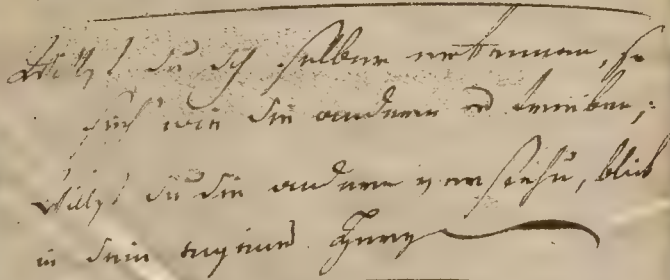 Willst du dich selber erkennen, so
sieh' wie die anderen es treiben;
Willst du die andern versteh'n, blick
in dein eigenes Herz